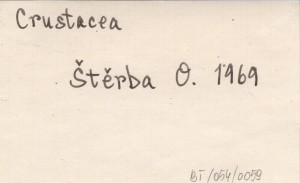 Crustacea
Štěrba O. 1969
BT/054/0059